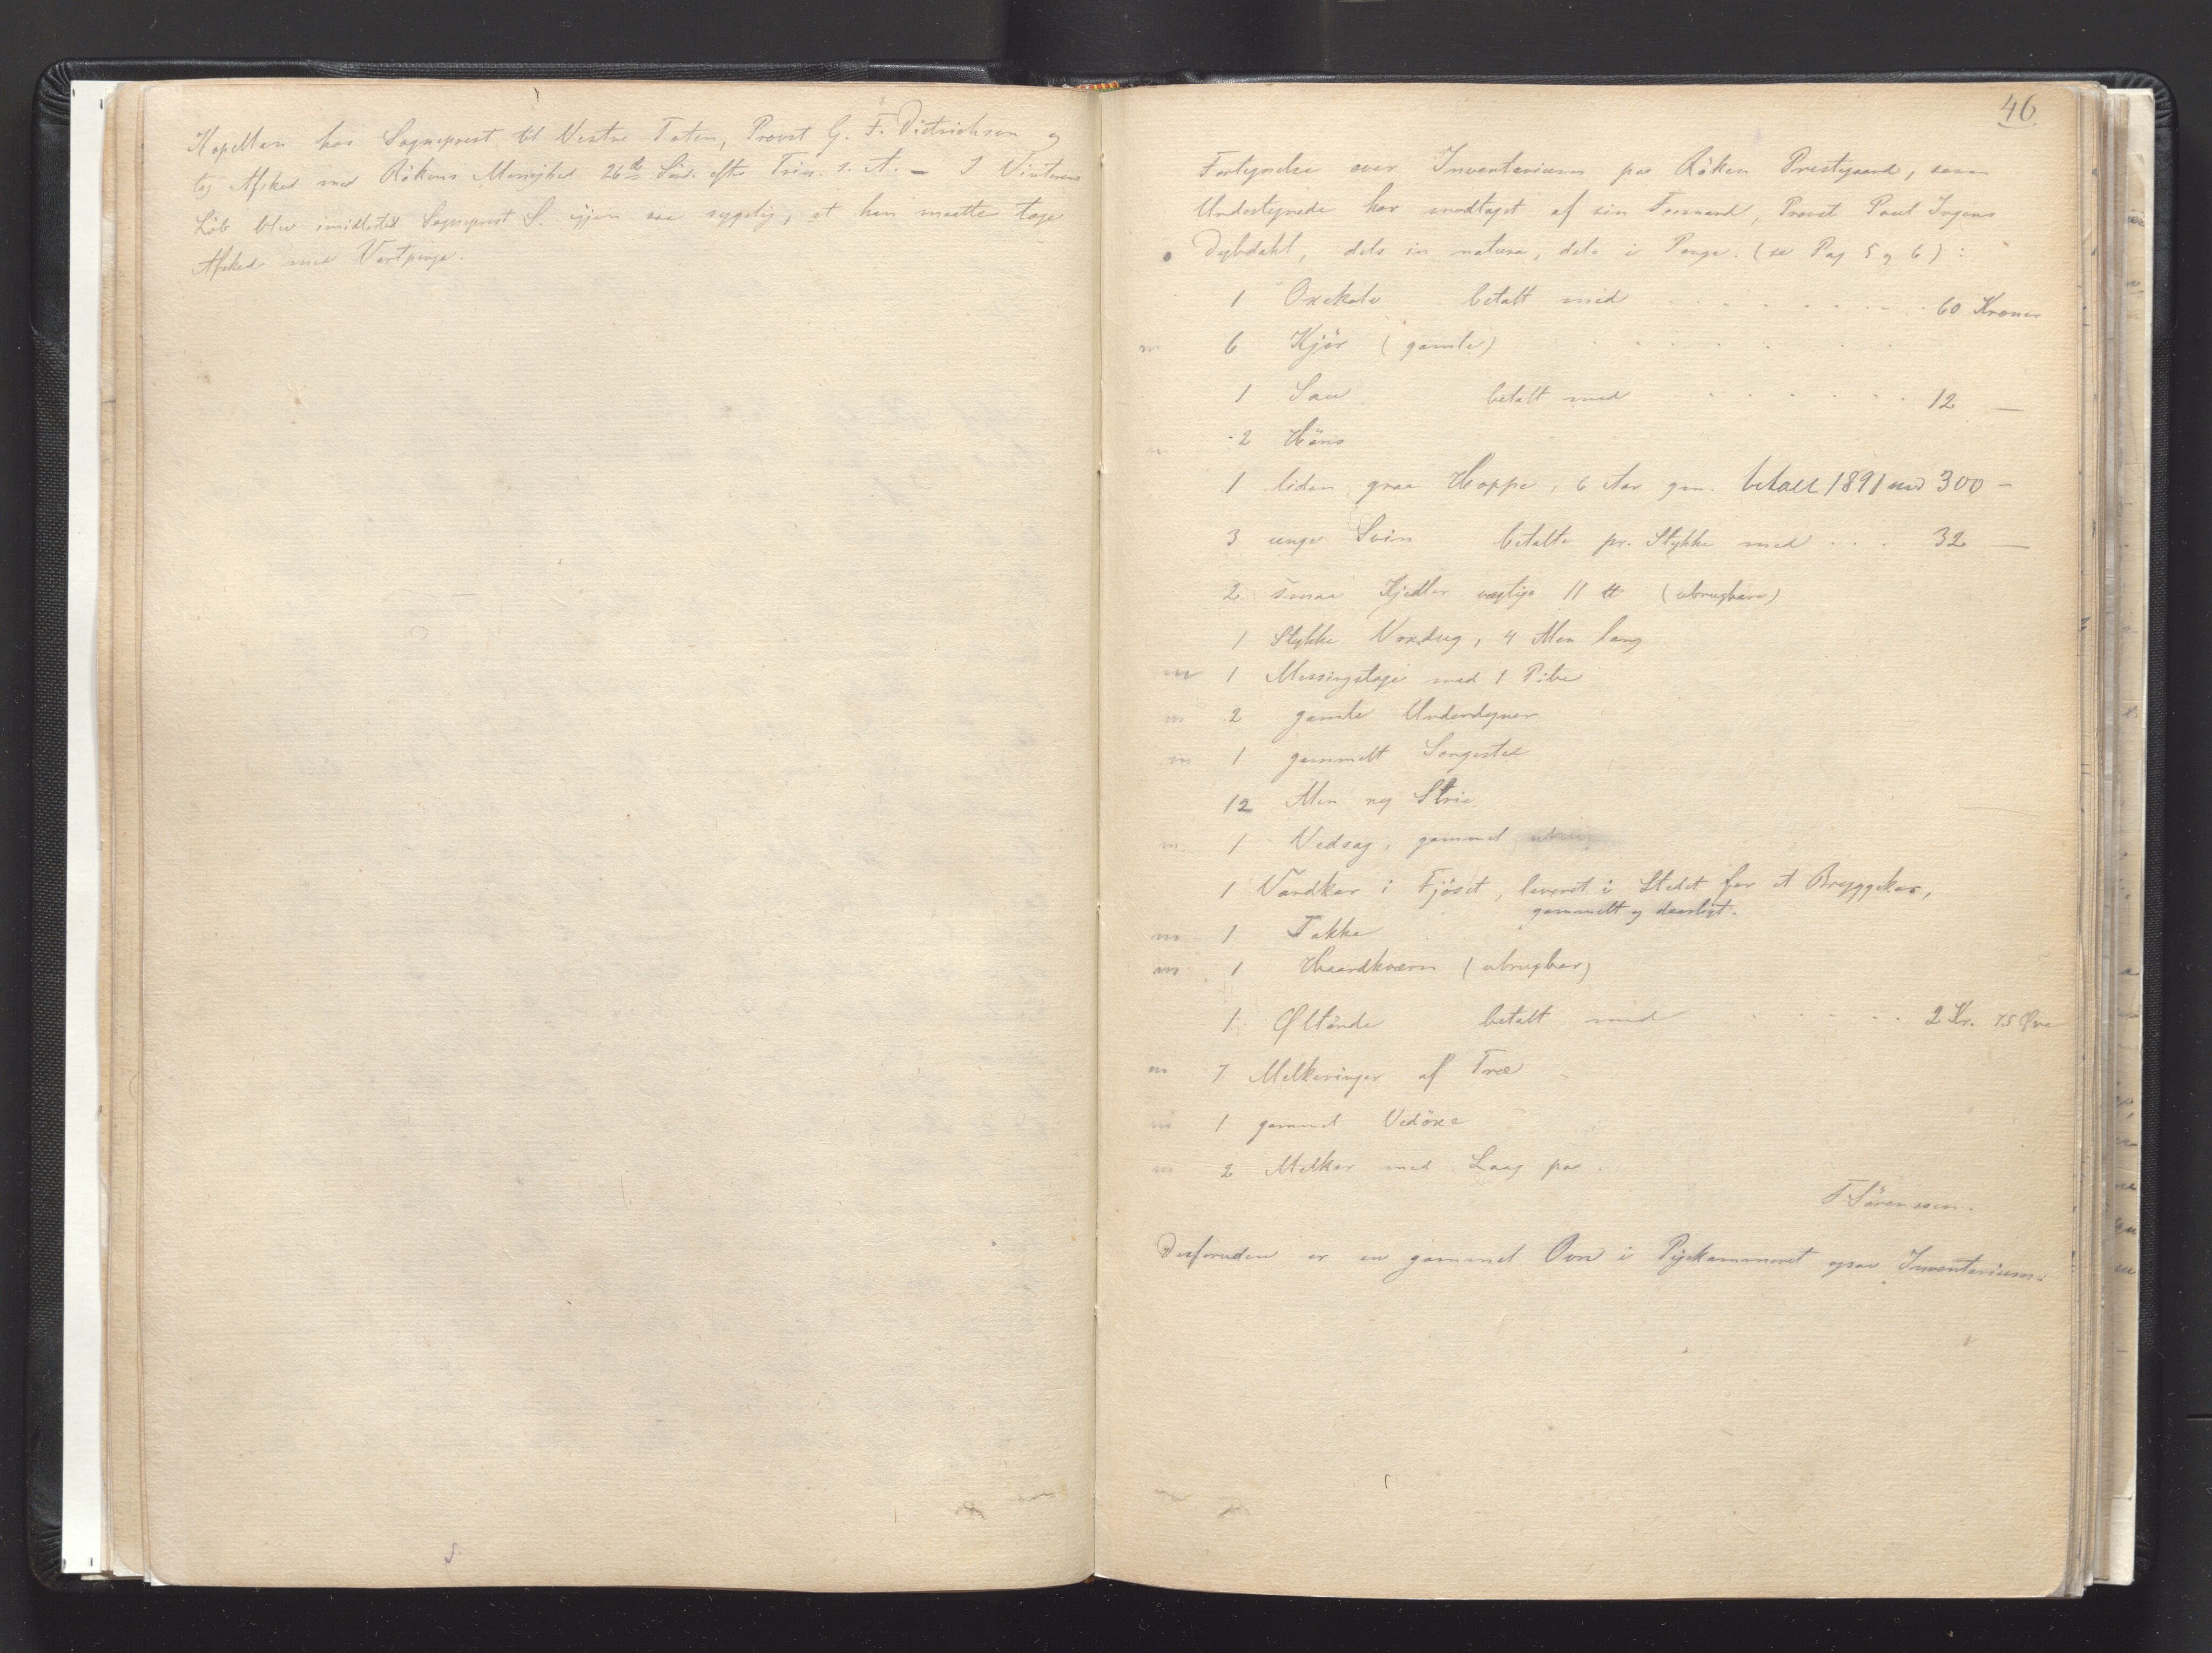 Kapellan hos Sogneprest til Vestre Toten, Provst G. F. Dietrichson og
tog Afsked med Rökens Menighed 26de Sönd. efter Trin. s. A. - I Vinterens
Löb blev imidlertid Sogneprest S. igjen saa sygelig, at han maatte tage
Afsked med Vartpenge.
46.
Fortegnelse over Inventarium paa Röken Prestegaard, som
Undertegnede har modtaget af sin Formand, Provst Poul Irgens
Dybdahl, dels in natura, dels i Penge. (se Pag 5 og 6):
1 Oxekalv betalt med 60 Kroner
6 Kjör (gamle)
1 Sau betalt med 12 —
2 Höns
1 liden graa Hoppe, 6 Aar gm. betalt 1891 med 300 -
3 unge Svin betalte pr. Stykke med . . . 32 —
2 smaa Kjedler vegtige 11 ℔ (ubrugbare)
1 Stykke Voxdug, 4 Alen lang
1 Messingstage med 1 Pibe
2 gamle Underdyner
1 gammelt Sengested
12 Alen ny Strie
1 Vedsag, gammel
1 Vandkar i Fjöset, leveret i Stedet for et Bryggekar,
gammelt og daarligt.
1 Takke
1 Haandkværn (ubrugbar)
1 Öltönde betalt med 2 Kr. 75 Øre
7 Melkeringer af Træ
1 gammel Vedöxe
2 Melkar med Laag paa.
F Sörenssen.
Desforuden er en gammel Ovn i Pigekammeret ogsaa Inventarium.